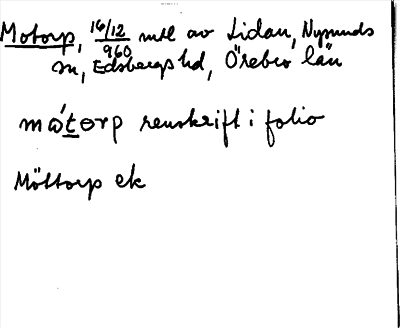 Motorp, 16/12 960 mtl av Lidan, Nysunds
sn, Edsbergs hd, Örebro län
mώtorp renskrift i folio
Möttorp ek